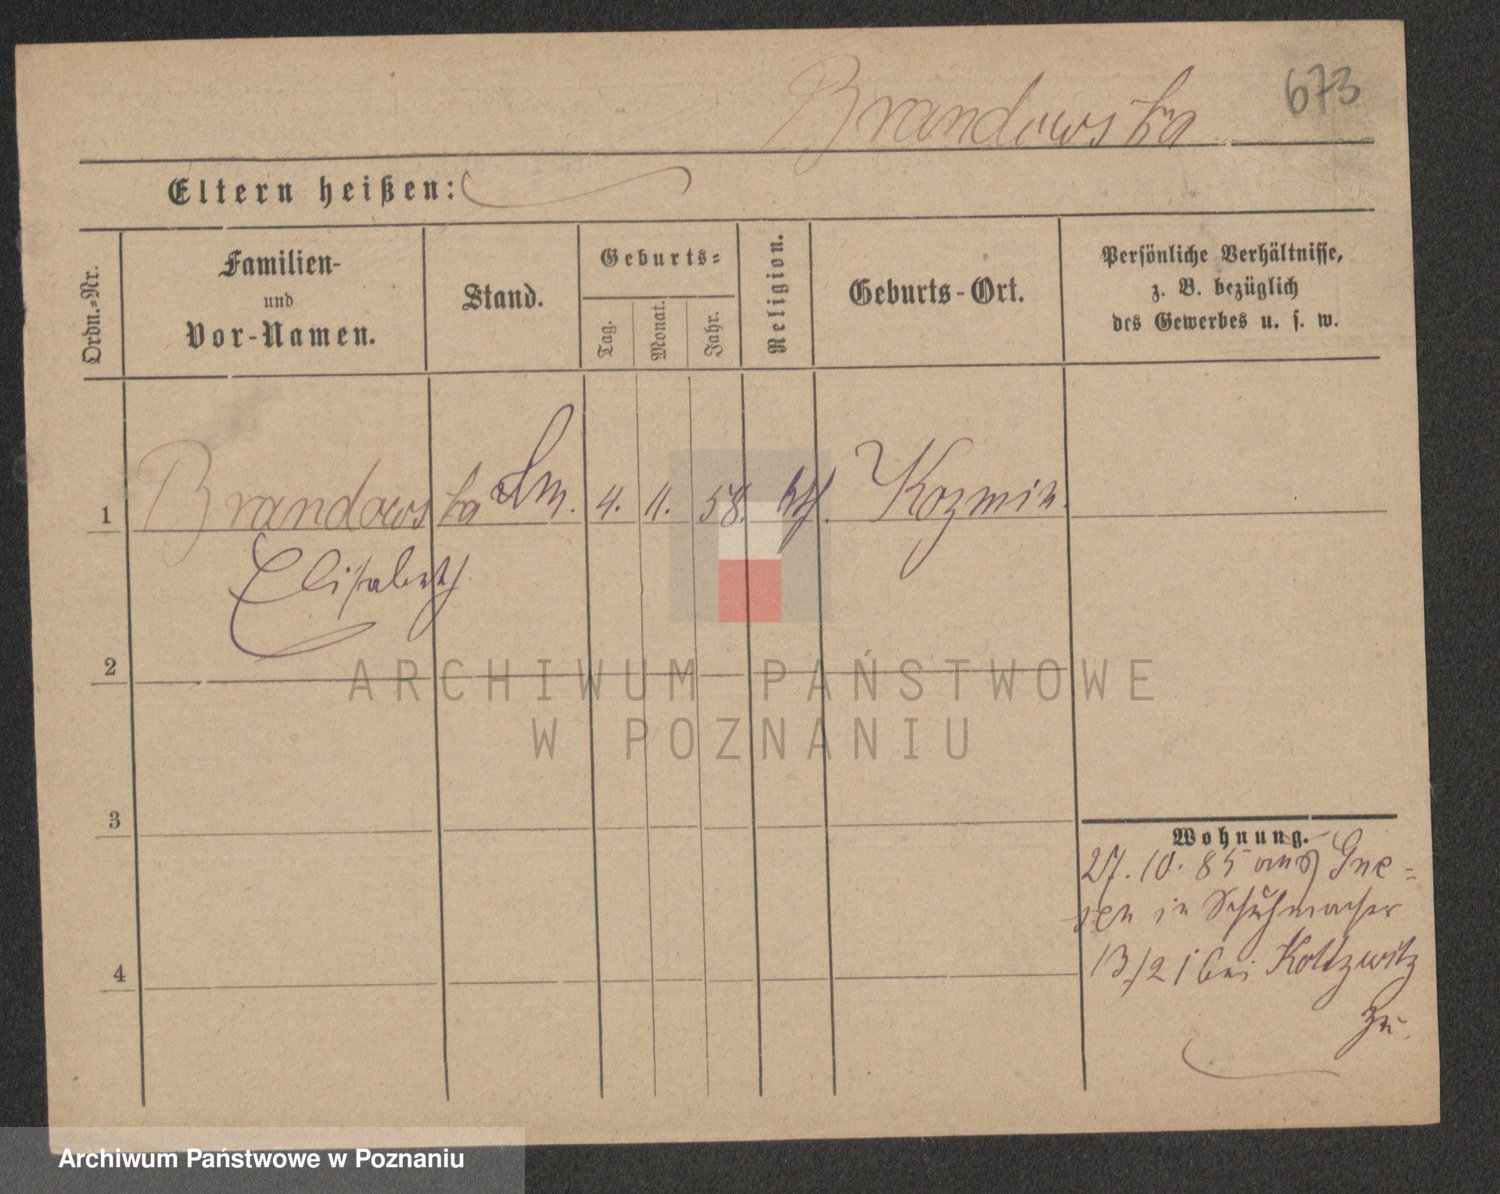 Brandowska
673
Eltern heißen:
Ordn.-Nr.
Familien-
und
Vor-Namen.
Stand.
Geburts-
Tag.
Monat.
Jahr.
Religion.
Geburts-Ort.
Persönliche Verhältnisse,
z. B. bezüglich
des Gewerbes u. s. w.
1
Brandowska
4. 11. 58. kth. Kozmin.
Elisabeth
2
3
4
Wohnung.
27. 10. 85 aus Gne-
sen in Schuhmacher
13/21 bei Koltzwitz
zu.
ARCHIWUM PAŃSTWOWE
W POZNANIU
Archiwum Państwowe w Poznaniu